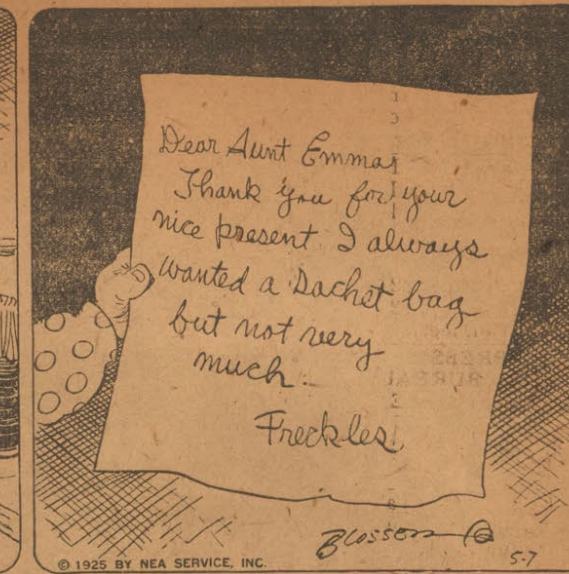 Dear Aunt Emma,
Thank you for your
nice present I always
wanted a sachet bag
but not very
much.
Freckles.
BLOSSER
© 1925 BY NEA SERVICE, INC.
5-7